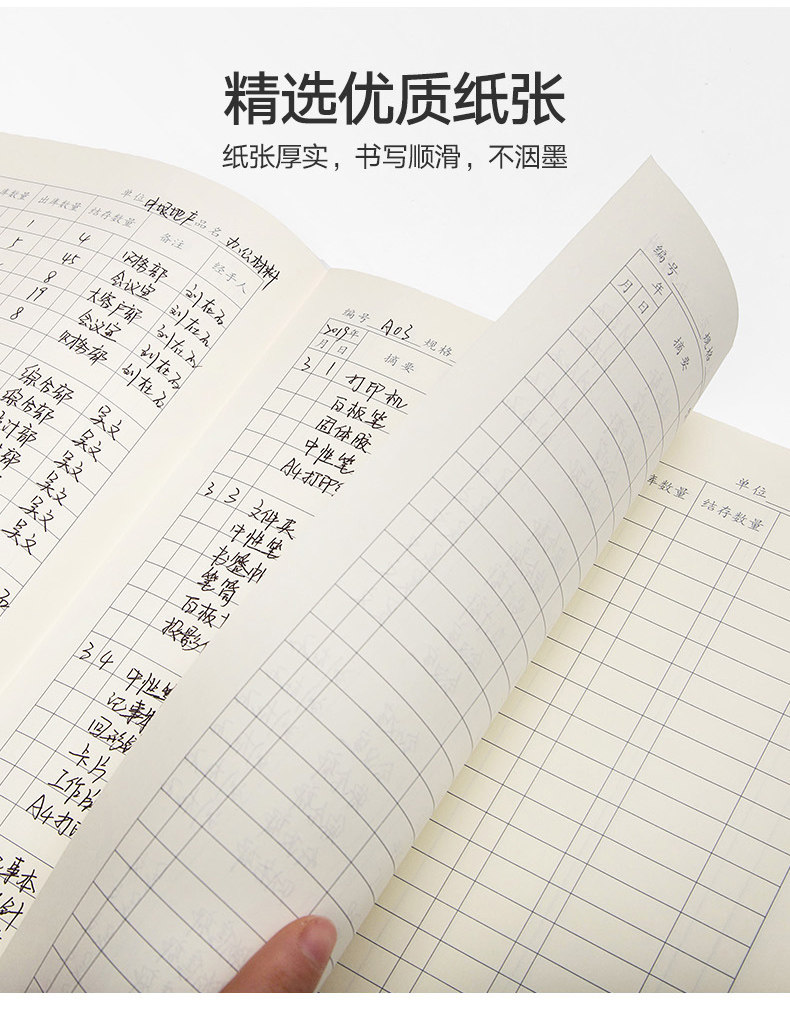 精选优质纸张
纸张厚实，书写顺滑，不洇墨
单位 中垠地产 品名 办公材料
库数量 出库数量 结存数量 备注 经手人
1 4 网络部 刘在石
5 45 会议室 刘在石
8 大客户部 刘在石
19 会议室 刘在石
8 网络部 刘在石
综合部 吴文
综合部 吴文
计部 吴文
部 吴文
吴文
吴文
编号 A03 规格
2019年
月 日 摘要
3 1 打印机
白板笔
固体胶
中性笔
A4打印
3 3 文件夹
中性笔
书签
笔筒
白板
投影
3 4 中性笔
记事本
回形针
卡片
工作
A4打
事本
针
编号 规格
年
月 日 摘要
单位
库数量 结存数量